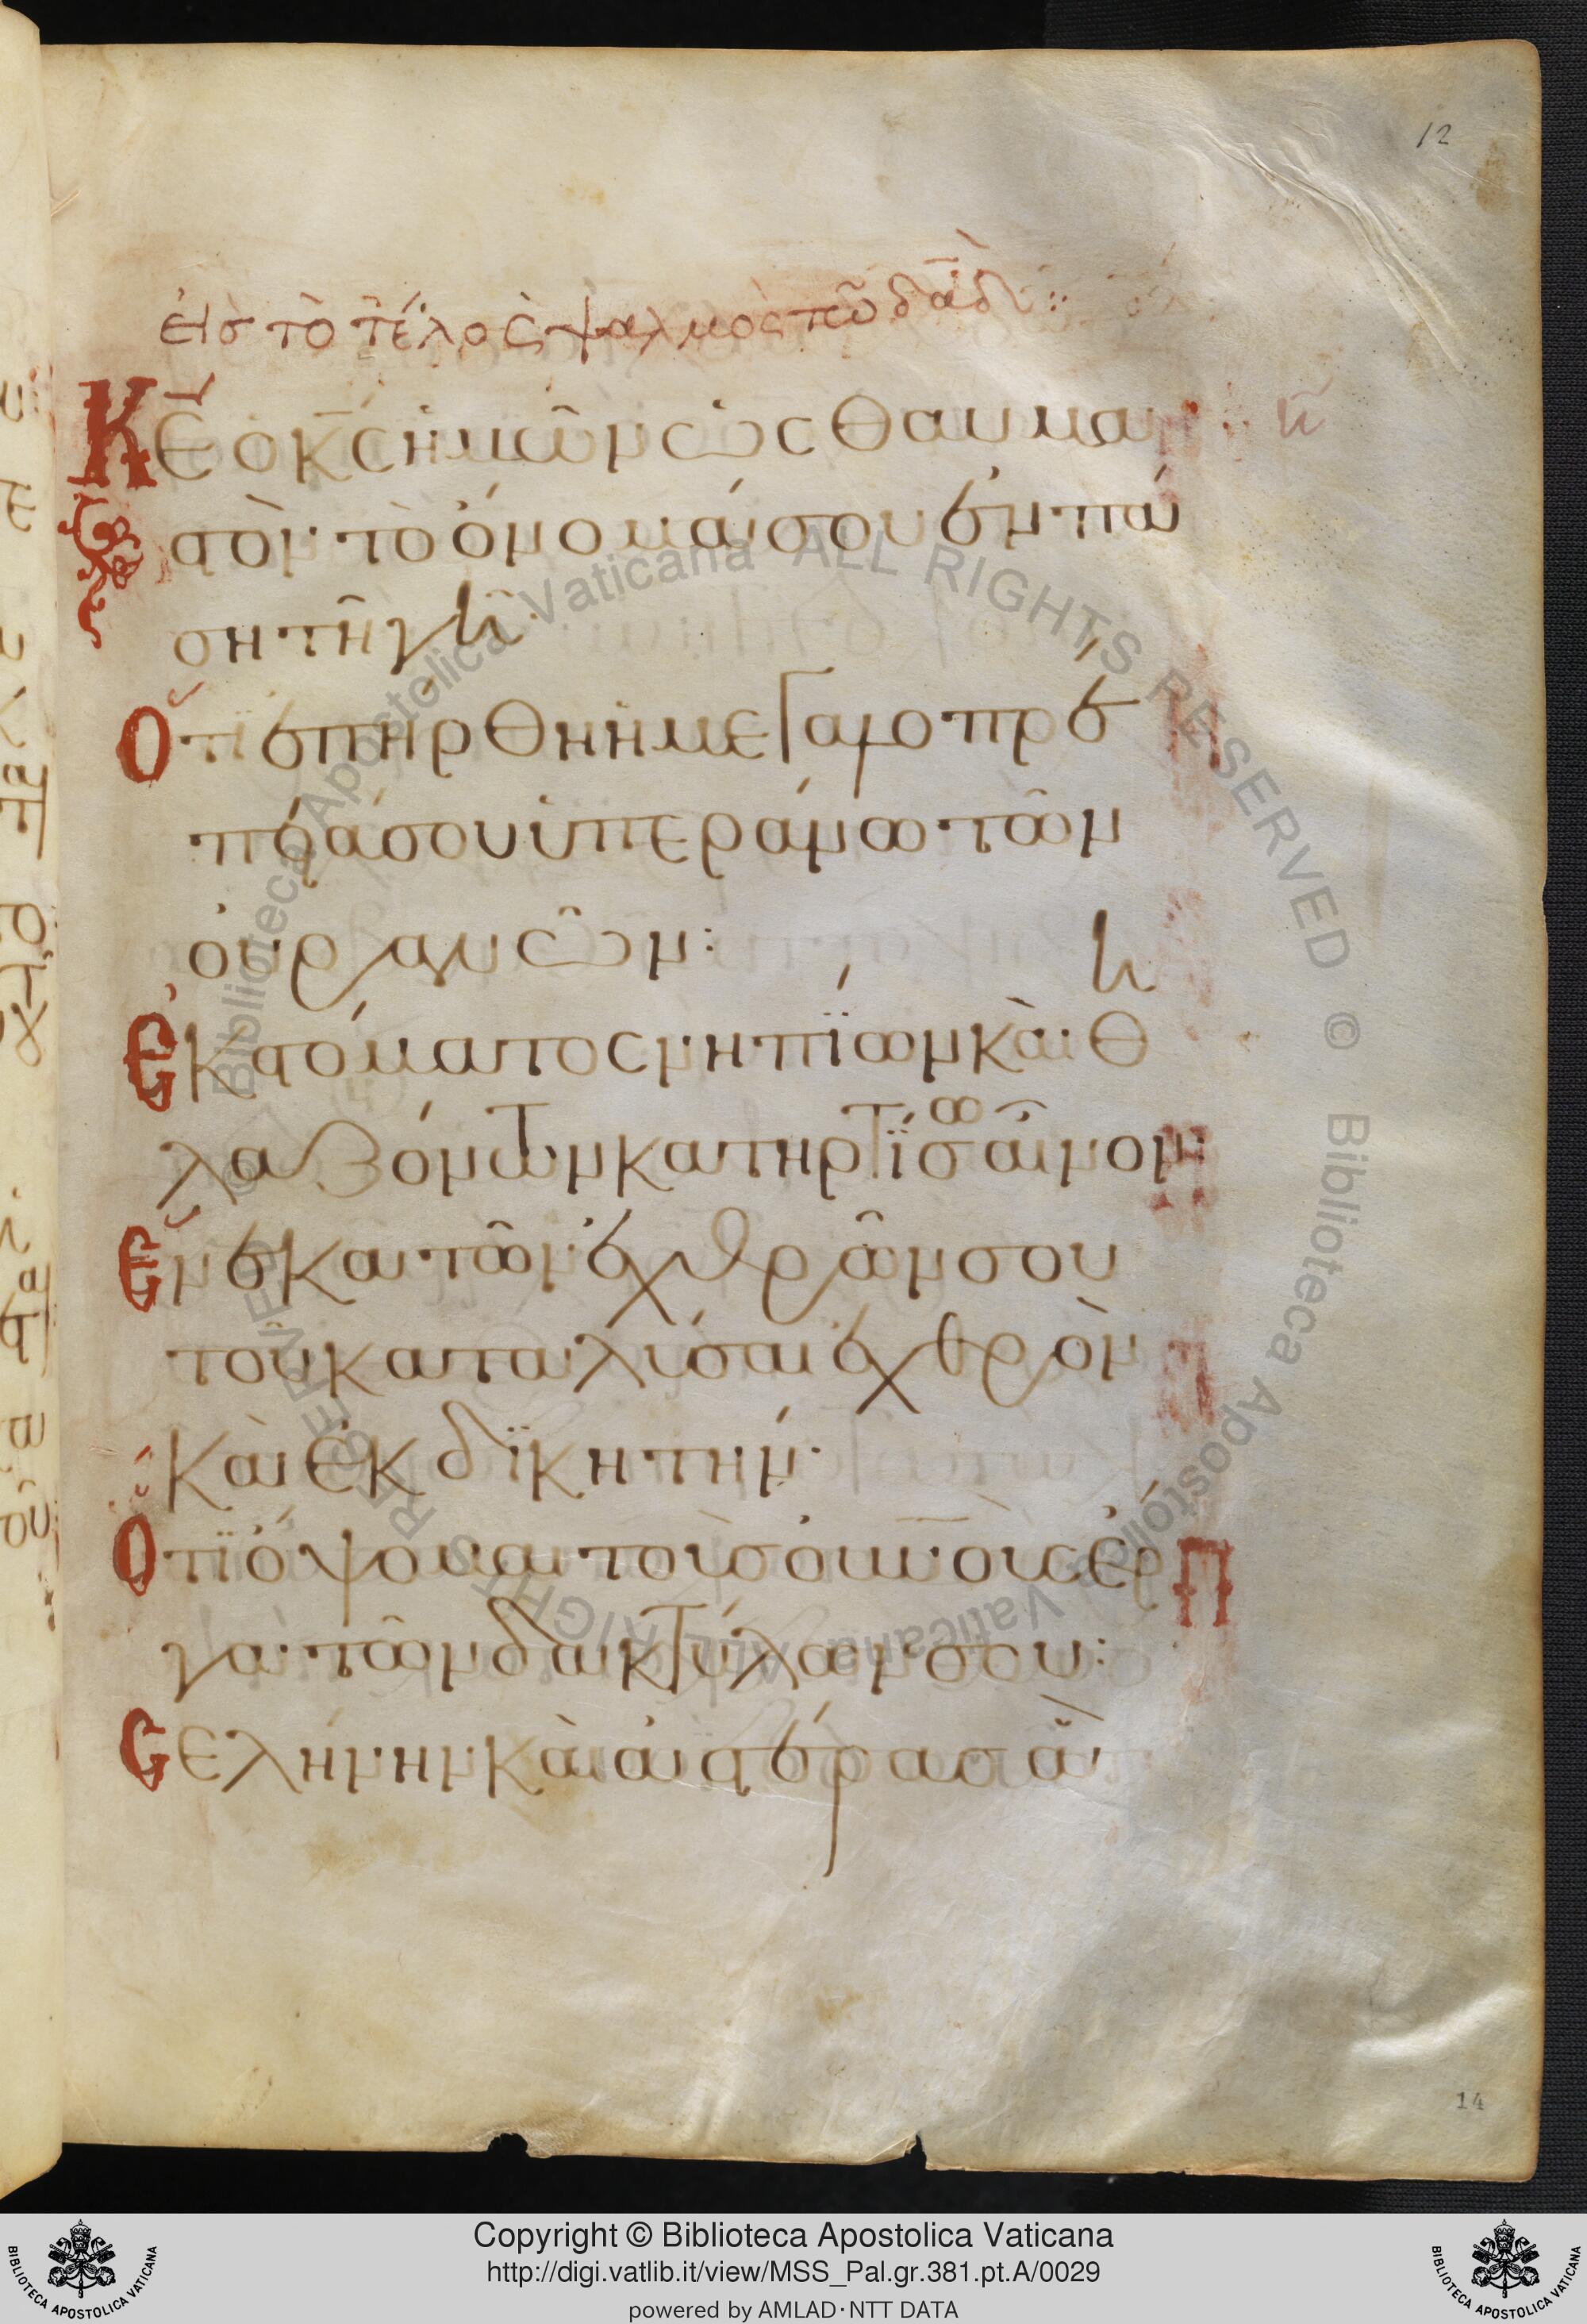 12
εἰς τὸ τέλος ψαλμὸς τῶ δᾱδ̀:
Κ̅Ε ὁ κ̅ς ἡμῶν ὡς θαυμα
στὸν τὸ ὄνομάσου ἐν πά
ση τῆ γῆ·
Ὅτι ἐπήρθη ἡ μεγαλοπρέ
πειάσου ὑπεράνω τῶν
οὐρανῶν:
Ἐκ στόματος νηπίων καὶ θη
λαζόντων κατηρτίσω αἶνον:
Ἕνεκα τῶν ἐχθρῶν σου
τοῦ καταλύσαι ἐχθρὸν
καὶ ἐκδϊκητήν·
Ὅτι ὄψομαι τοὺσ ο̅υ̅ν̅ο̅υ̅ς ἔρ
γα τῶν δακτύλων σου:
Σελήνην καὶ ἀστέρασ ἃ
14
Copyright © Biblioteca Apostolica Vaticana
http://digi.vatlib.it/view/MSS_Pal.gr.381.pt.A/0029
powered by AMLAD·NTT DATA
BIBLIOTECA APOSTOLICA VATICANA
BIBLIOTECA APOSTOLICA VATICANA